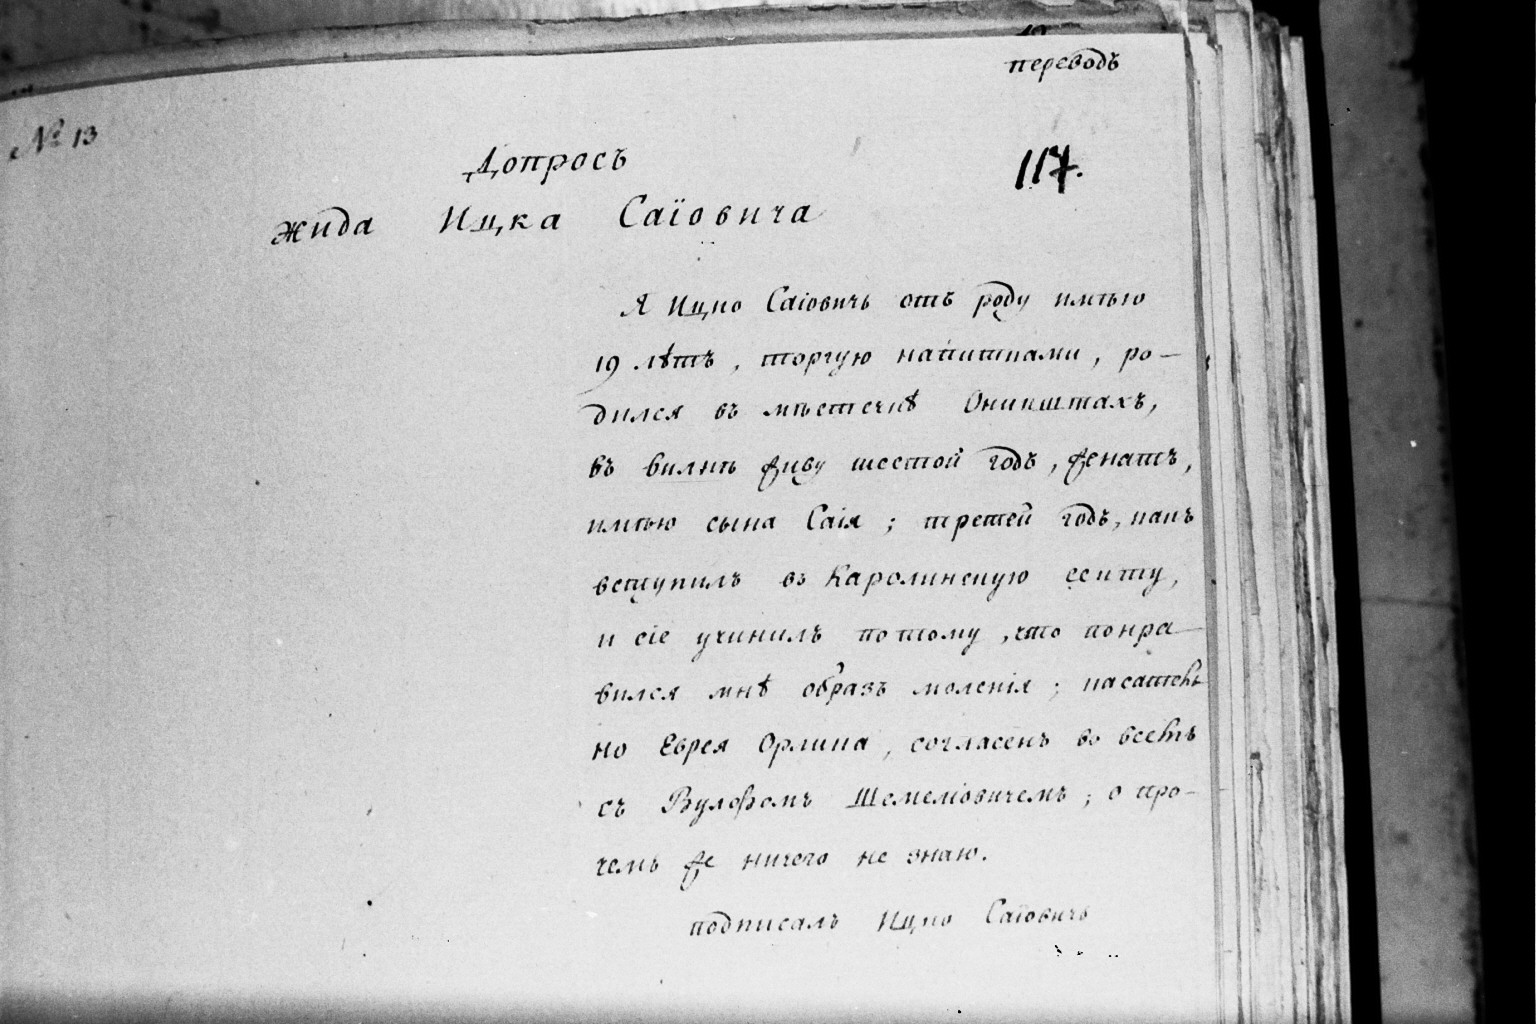 переводъ
№ 13
Допросъ
117.
жида Ицка Саіовича
Я Ицко Саіовичь отъ роду имѣю
19 лѣтъ, торгую напитками, ро-
дился въ мѣстечкѣ Оникштахъ,
въ вилнѣ живу шестой годъ, женатъ,
имѣю сына Саія; третей годъ, какъ
вступилъ въ Каролинскую секту,
и сіе учинилъ потому, что понра-
вился мнѣ образъ моленія; касатель-
но Еврея Орлика, согласенъ во всемъ
съ Вулфомъ Шемеліовичемъ; о про-
чемъ же ничего не знаю.
подписалъ Ицко Саіовичь